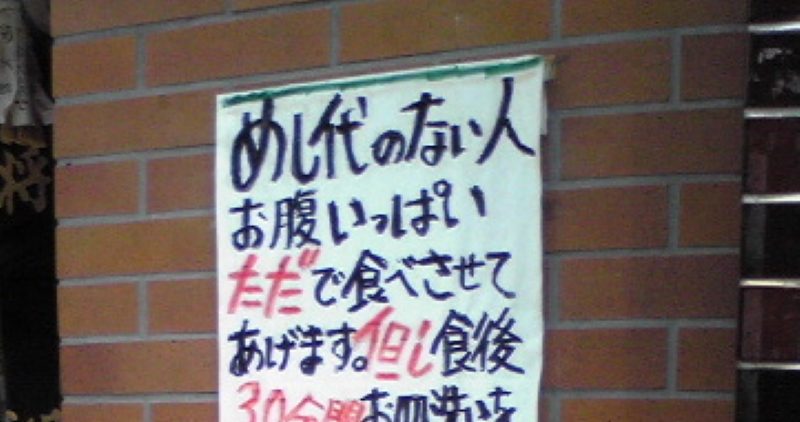 めし代のない人
お腹いっぱい
ただで食べさせて
あげます。但し食後
30分間お皿洗いを
将